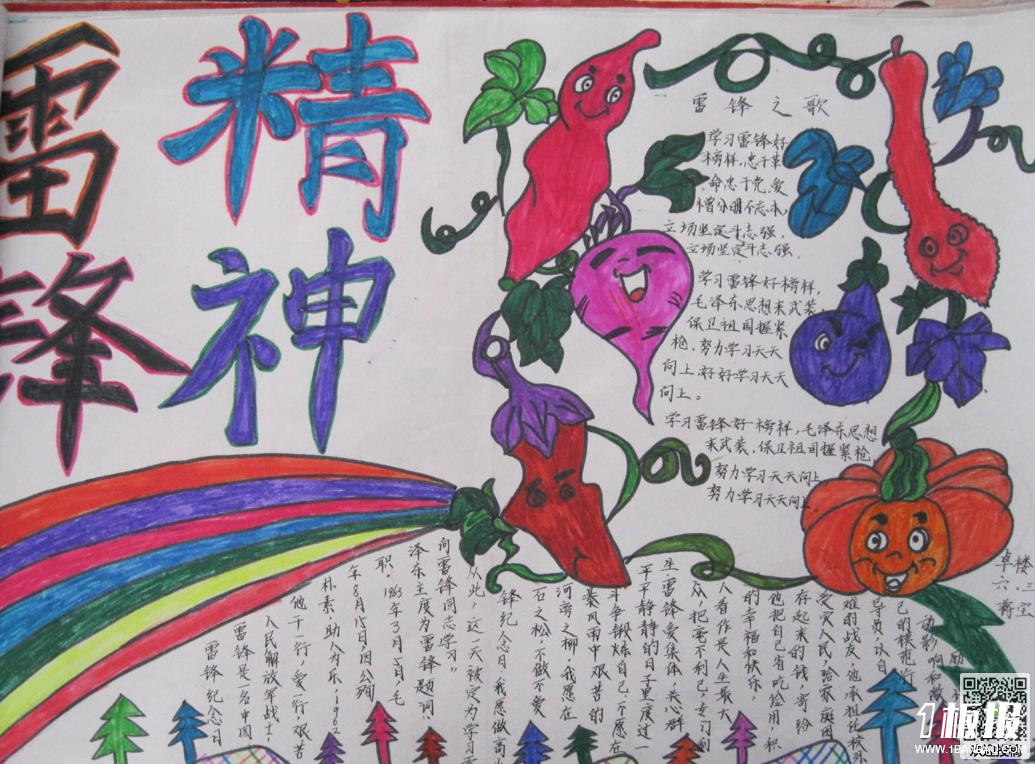 雷锋
精神
雷锋之歌
学习雷锋好
榜样，忠于革
命忠于党，爱
憎分明不忘本，
立场坚定斗志强，
立场坚定斗志强．
学习雷锋好榜样，
毛泽东思想来武装，
保卫祖国握紧
枪，努力学习天天
向上好好学习天天
向上。
学习雷锋好榜样，毛泽东思想
来武装，保卫祖国握紧枪，
努力学习天天向上
努力学习天天向上．
雷锋纪念日
雷锋是一名中国
人民解放军战士，
他干一行，爱一行，艰苦
朴素，助人为乐，1962
年8月15日，因公殉
职，1963年3月5日，毛
泽东主席为雷锋题词："
向雷锋同志学习"
从此，这一天被定为学习雷
锋纪念日，我愿做高山
石之松，不做不爱
河旁之柳，我愿在
暴风雨中艰苦的
斗争锻炼自己，不愿在
平平静静的日子里度过一
生，雷锋爱集体，关心群
众，把毫不利己，专门利
人看作是人生最大
的幸福和快乐
他把自己省吃俭用，积
存起来的钱，寄给
受灾人民，给家庭困
难的战友，
1板报
WWW.1BANBAO.COM